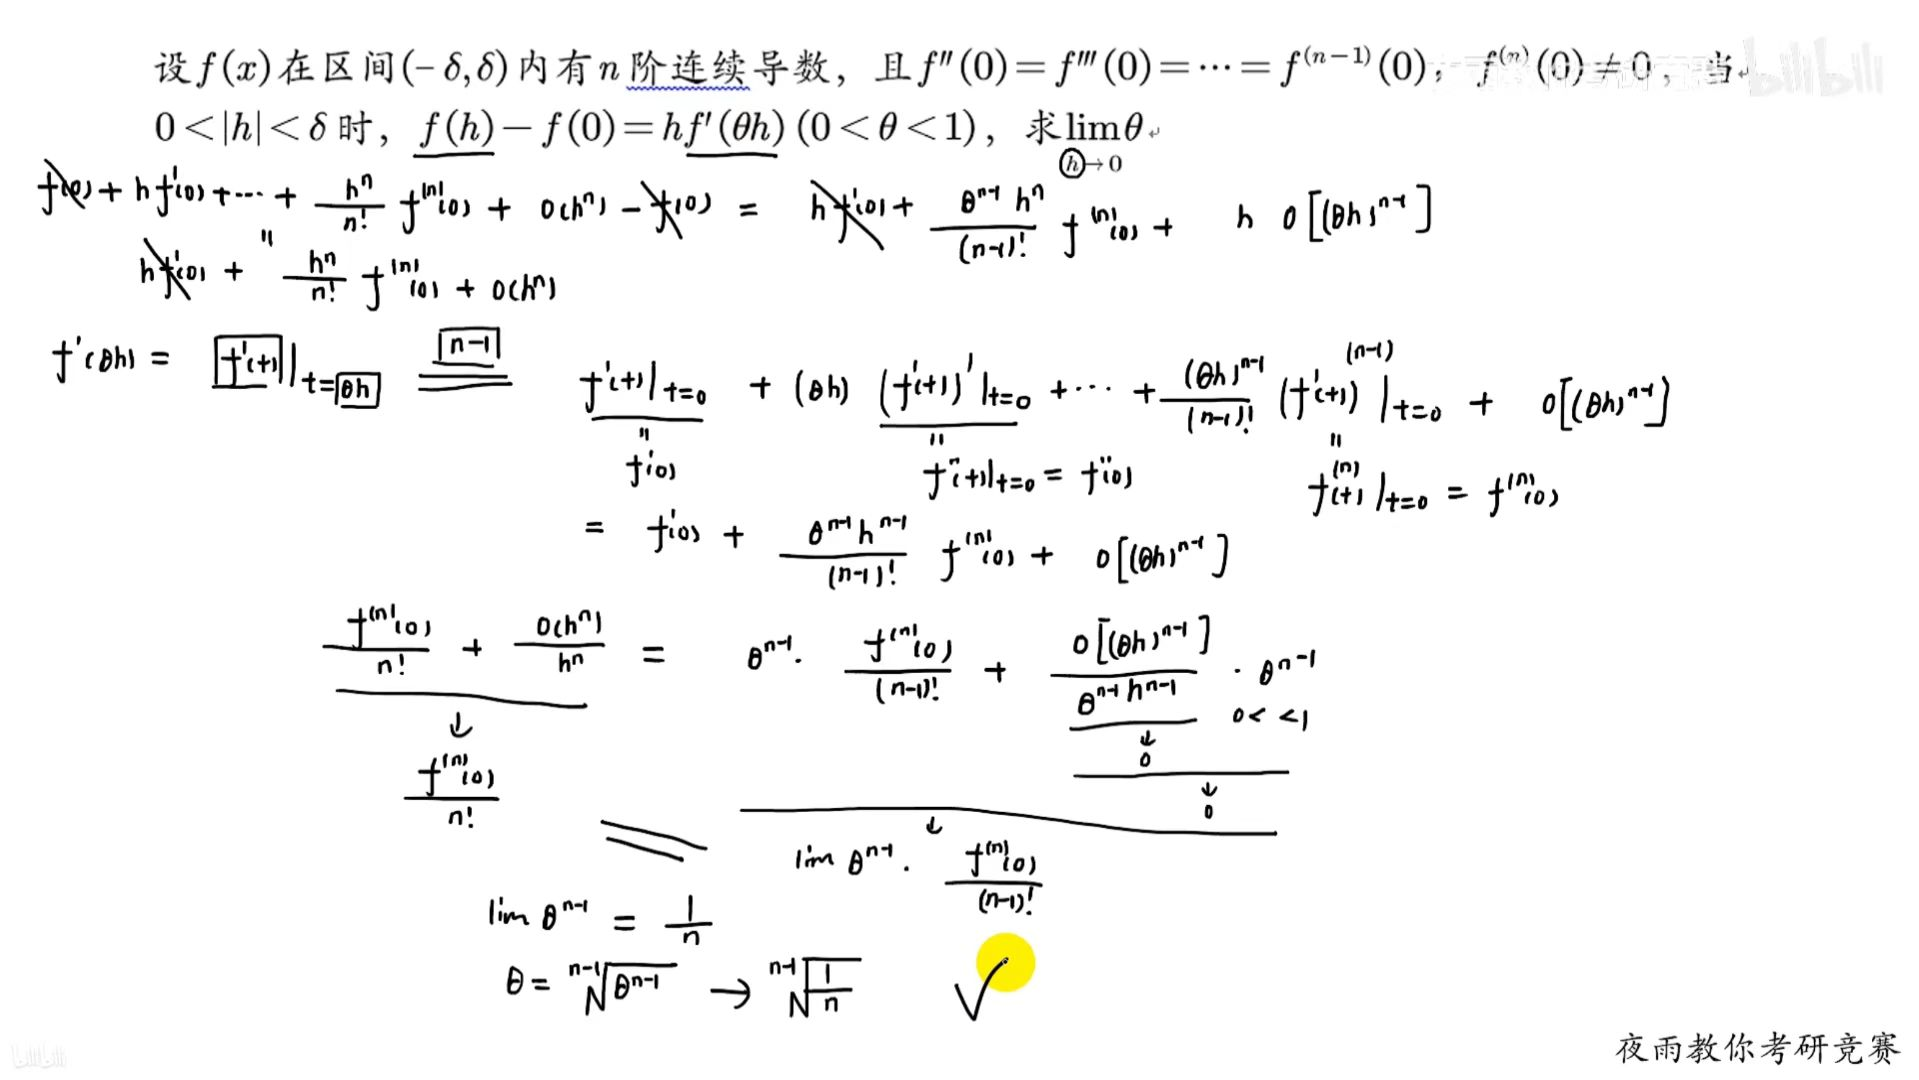 设f(x)在区间(-δ,δ)内有n阶连续导数，且f''(0)=f'''(0)=⋯=f^(n-1)(0)，f^(n)(0)≠0，当
0<|h|<δ时，f(h)-f(0)=hf'(θh)(0<θ<1)，求lim_{h→0}θ
f(0) + hf'(0) + ⋯ + h^n/n! f^(n)(0) + o(h^n) - f(0) = hf'(0) + θ^{n-1}h^n/(n-1)! f^(n)(0) + h o[(θh)^{n-1}]
"
hf'(0) + h^n/n! f^(n)(0) + o(h^n)
f'(θh) = f'(t)|_{t=θh} = n-1 f'(t)|_{t=0} + (θh)(f'(t))'|_{t=0} + ⋯ + (θh)^{n-1}/(n-1)! (f'(t))^(n-1)|_{t=0} + o[(θh)^{n-1}]
" " "
f'(0) f''(t)|_{t=0} = f''(0) f^(n)(t)|_{t=0} = f^(n)(0)
= f'(0) + θ^{n-1}h^{n-1}/(n-1)! f^(n)(0) + o[(θh)^{n-1}]
f^(n)(0)/n! + o(h^n)/h^n = θ^{n-1}· f^(n)(0)/(n-1)! + o[(θh)^{n-1}]/θ^{n-1}h^{n-1} · θ^{n-1}
0< <1
↓ ↓
0
f^(n)(0)/n! ↓
0
= ↓
lim θ^{n-1}· f^(n)(0)/(n-1)!
lim θ^{n-1} = 1/n
θ = ^{n-1}√θ^{n-1} → ^{n-1}√1/n √
夜雨教你考研竞赛
bilibili
bilibili